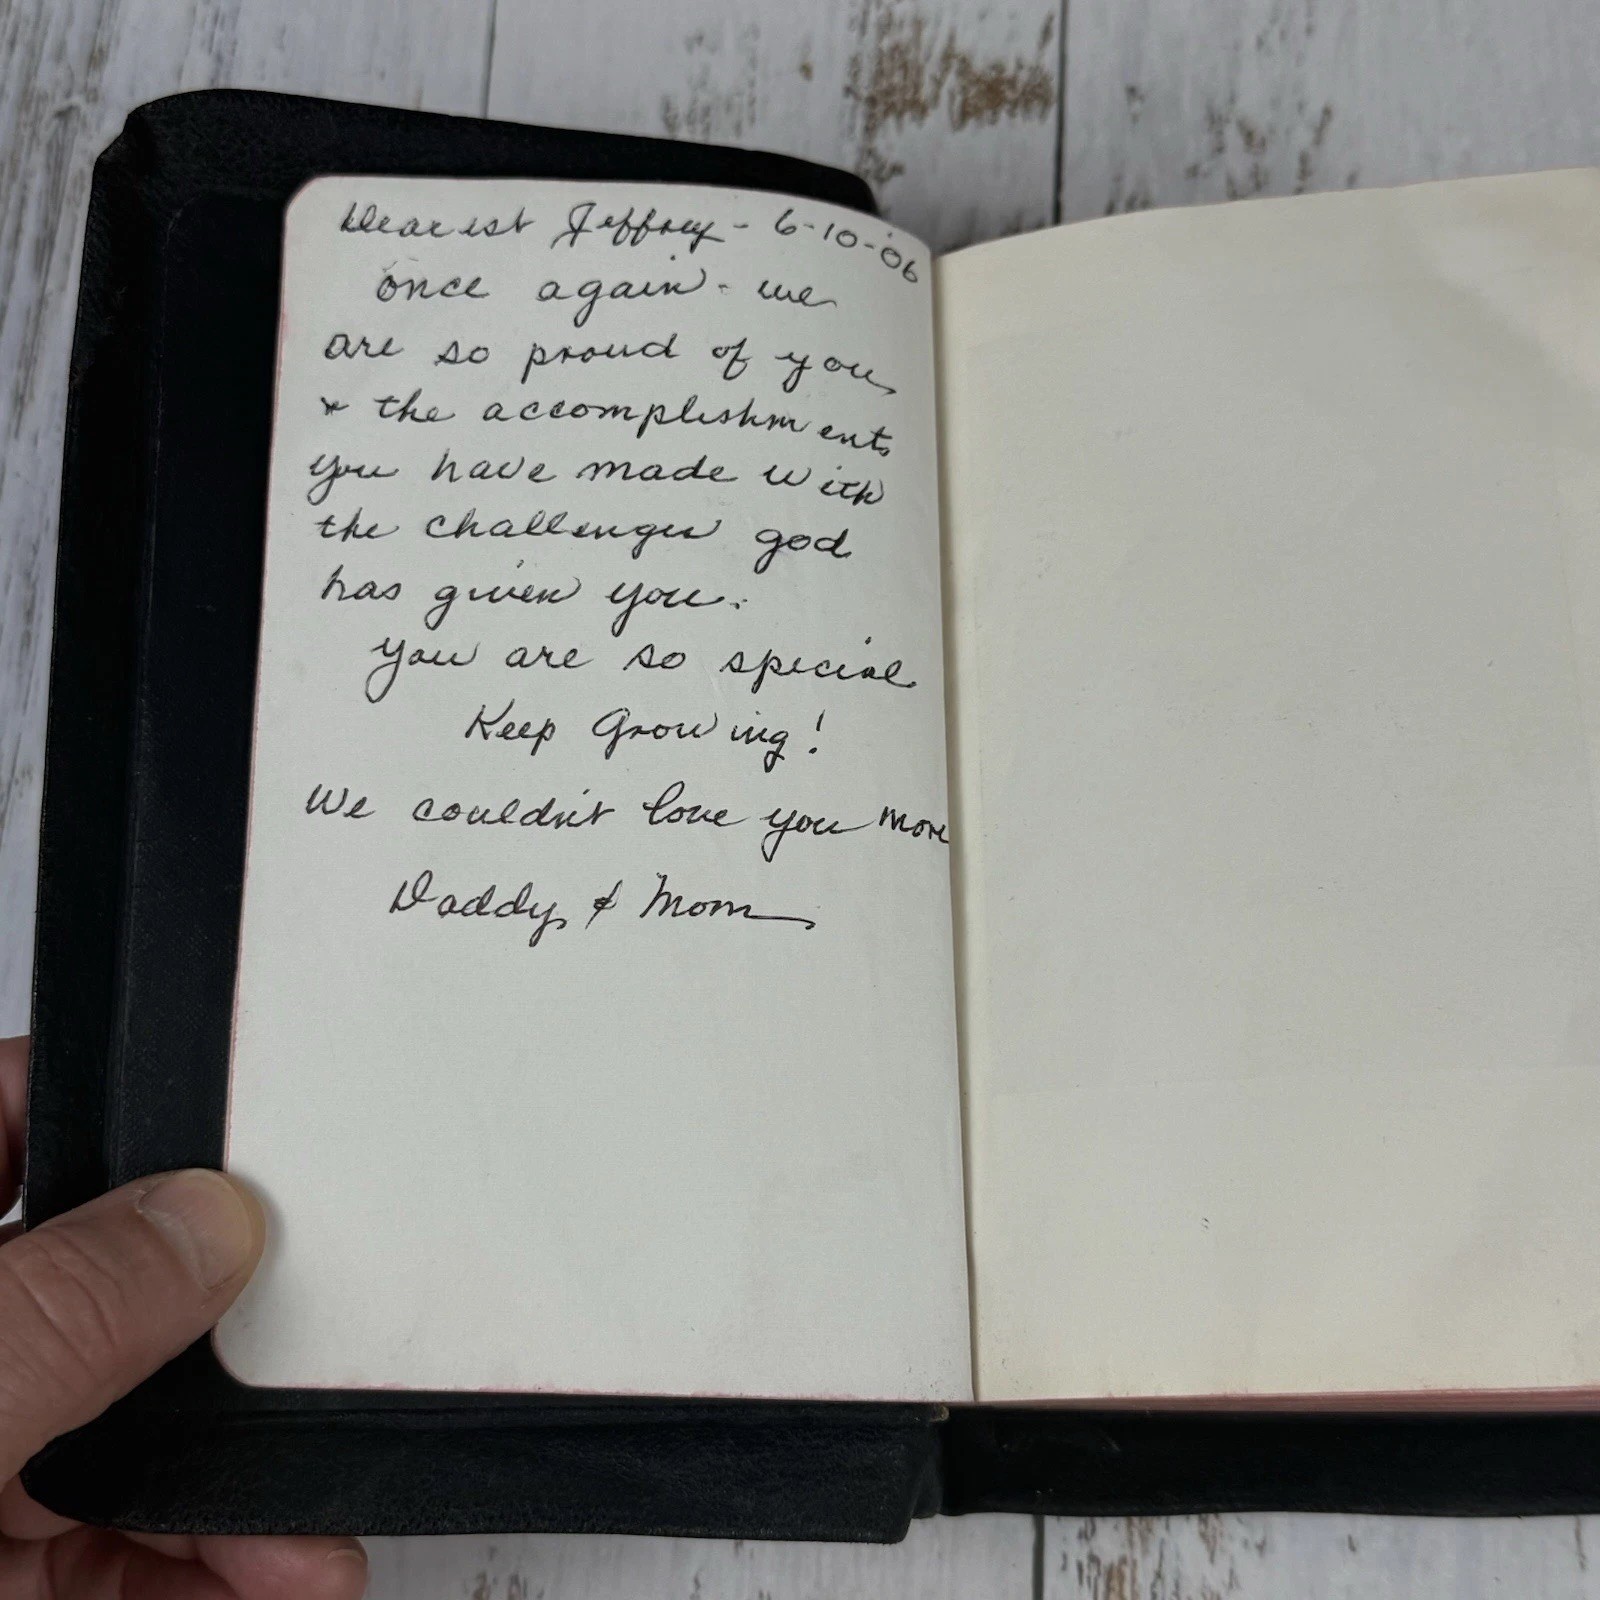 Dearest Jeffrey - 6-10-'06
once again - we
are so proud of you
& the accomplishments
you have made with
the challenges god
has given you.
you are so special
Keep Growing!
We couldn't love you more
Daddy & Mom